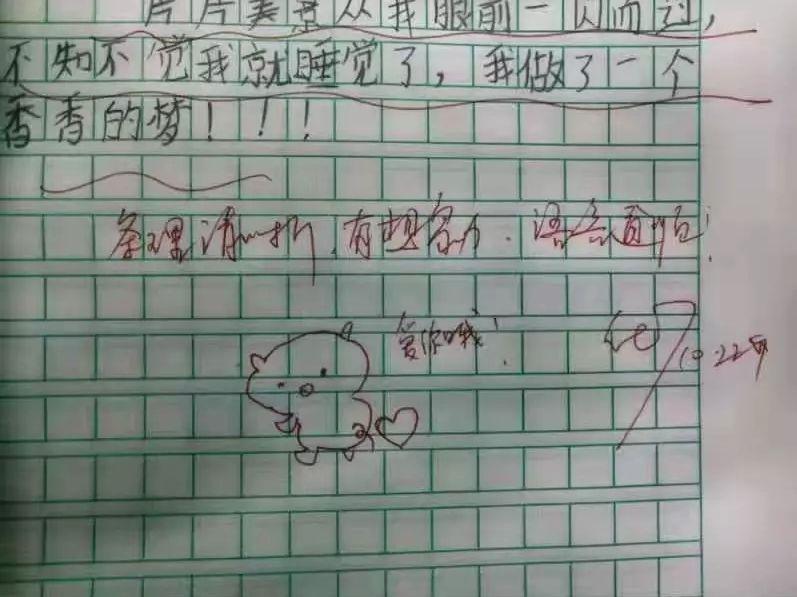 片片美景从我眼前一闪而过，
不知不觉我就睡觉了，我做了一个
香香的梦！！！
条理清晰，有想象力，语言直白！
爱你哦！
10.22